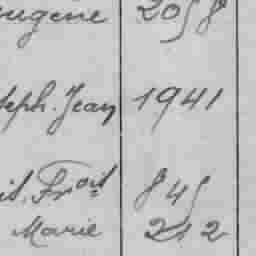 eugène 2058
seph. Jean 1941
it, Frois 845
Marie 212